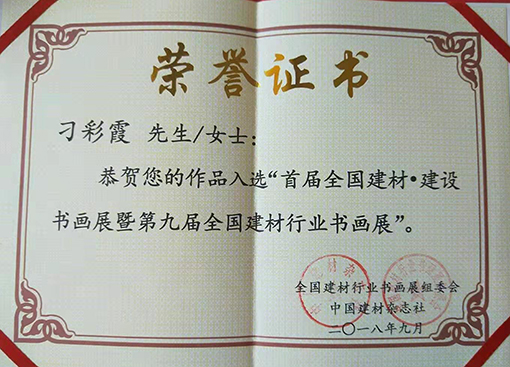 荣誉证书
刁彩霞 先生/女士：
恭贺您的作品入选“首届全国建材•建设
书画展暨第九届全国建材行业书画展”。
全国建材行业书画展组委会
中国建材杂志社
二〇一八年九月